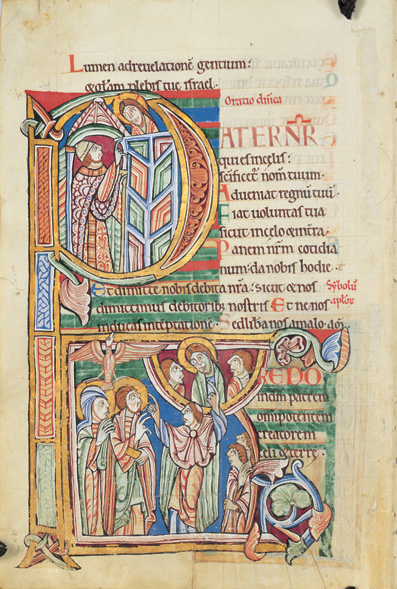 Lumen ad revelationē gentium:
& glam plebis tue israel.
Oratio dñica
PATER NR̄
qui es in celis:
scificet᷑ nom̄ tuum.
Adveniat regnū tuū.
Fiat voluntas tua
sicut in celo & in tra.
Panem nrm̄ cotidia
num: da nobis hodie.
Et dimitte nobis debita nr̄a: sicut & nos
dimittimus debitorib; nostris. Et ne nos
inducas in temptatione. Sed liba nos a malo. am̄.
Sybolū
aplor
CREDO
in dm patrem
omnipotentem
creatorem
celi & terre.